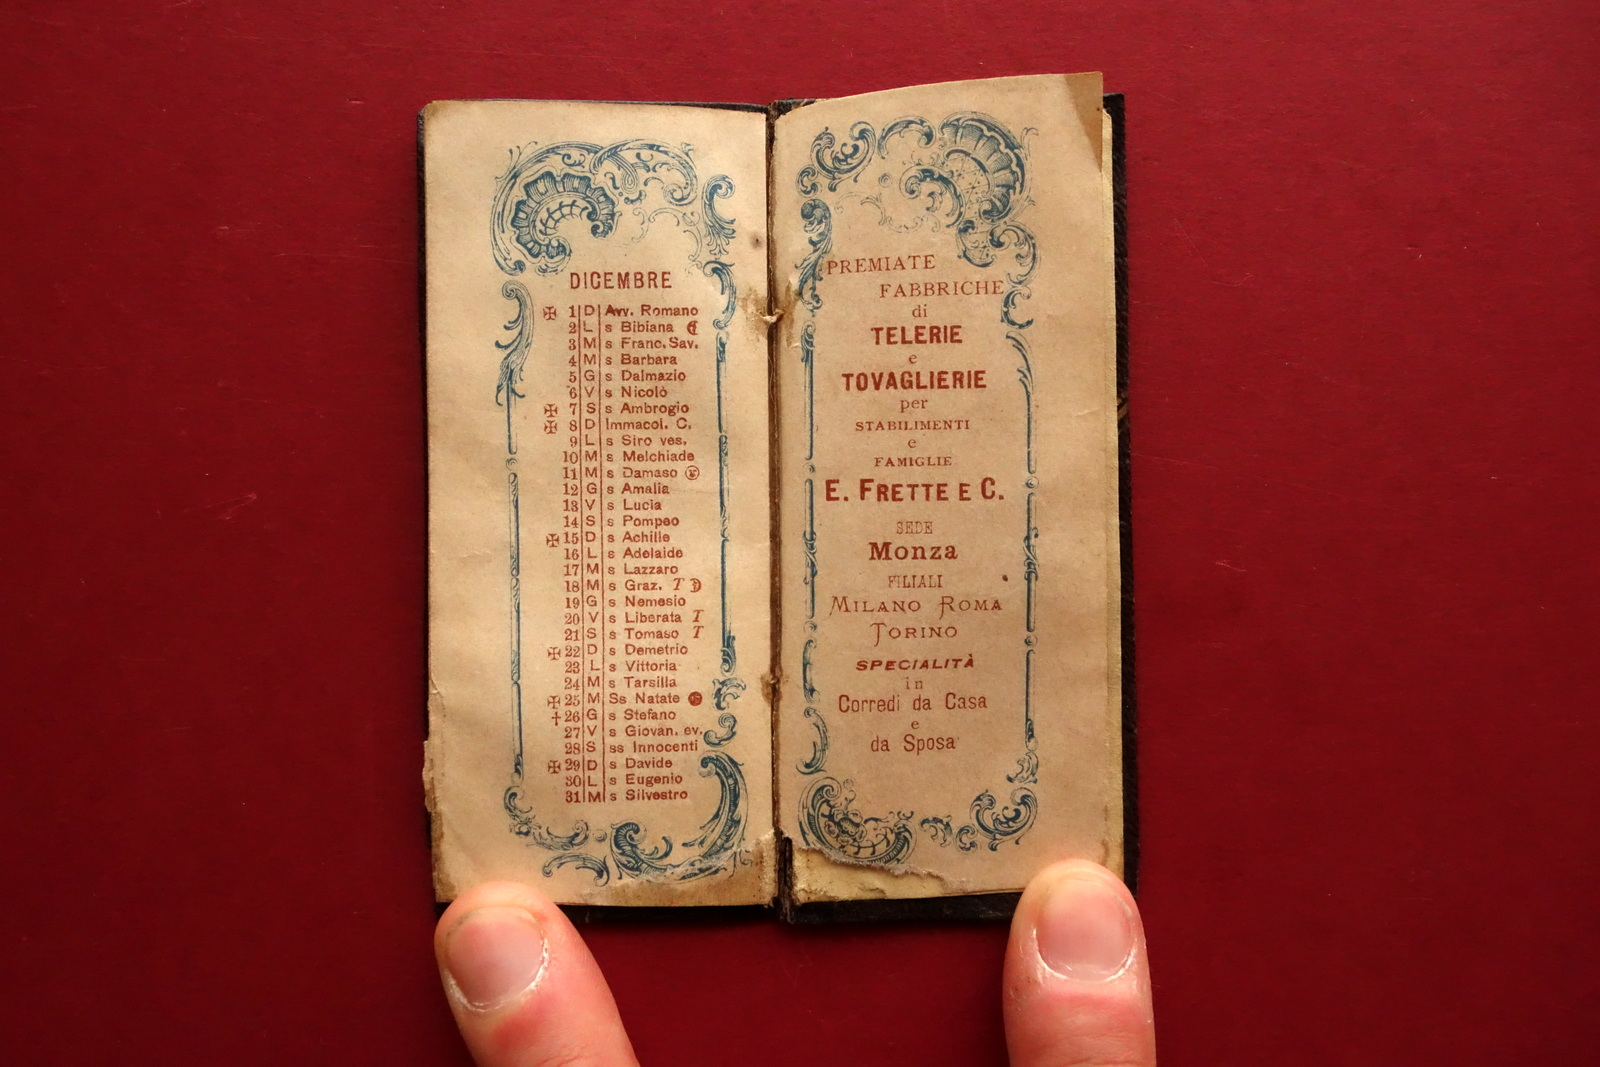 DICEMBRE
✠ 1 D Avv. Romano
2 L s Bibiana ☾
3 M s Franc. Sav.
4 M s Barbara
5 G s Dalmazio
6 V s Nicolò
✠ 7 S s Ambrogio
✠ 8 D Immacol. C.
9 L s Siro ves.
10 M s Melchiade
11 M s Damaso
12 G s Amalia
13 V s Lucia
14 S s Pompeo
✠ 15 D s Achille
16 L s Adelaide
17 M s Lazzaro
18 M s Graz. T ☽
19 G s Nemesio
20 V s Liberata T
21 S s Tomaso T
✠ 22 D s Demetrio
23 L s Vittoria
24 M s Tarsilla
✠ 25 M Ss Natate
† 26 G s Stefano
27 V s Giovan. ev.
28 S ss Innocenti
✠ 29 D s Davide
30 L s Eugenio
31 M s Silvestro
PREMIATE
FABBRICHE
di
TELERIE
e
TOVAGLIERIE
per
STABILIMENTI
e
FAMIGLIE
E. FRETTE E C.
SEDE
Monza
FILIALI
MILANO ROMA
TORINO
SPECIALITÀ
in
Corredi da Casa
e
da Sposa